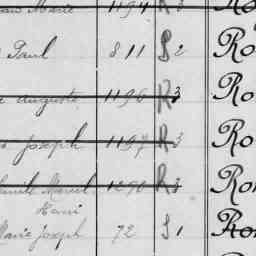 Marie 1194 R 3 Ro
Paul 811 S 2 Ro
auguste 1196 R 3 Ro
Joseph 1197 R 3 Ro
Marcel 1290 R 3 Ro
Henri
Marie Joseph 72 S 1 Ro